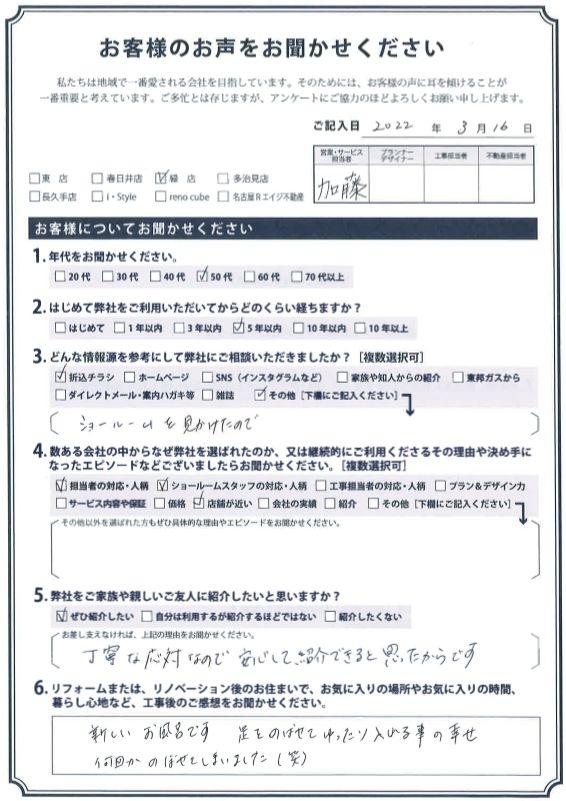 お客様のお声をお聞かせください
私たちは地域で一番愛される会社を目指しています。そのためには、お客様の声に耳を傾けることが
一番重要と考えています。ご多忙とは存じますが、アンケートにご協力のほどよろしくお願い申し上げます。
ご記入日 2022 年 3 月 16 日
営業・サービス担当者 プランナーデザイナー 工事担当者 不動産担当者
加藤
□東 店 □春日井店 ☑緑 店 □多治見店
□長久手店 □i・Style □reno cube □名古屋Rエイジ不動産
お客様についてお聞かせください
1. 年代をお聞かせください。
□20代 □30代 □40代 ☑50代 □60代 □70代以上
2. はじめて弊社をご利用いただいてからどのくらい経ちますか？
□はじめて □1年以内 □3年以内 ☑5年以内 □10年以内 □10年以上
3. どんな情報源を参考にして弊社にご相談いただきましたか？［複数選択可］
☑折込チラシ □ホームページ □SNS（インスタグラムなど） □家族や知人からの紹介 □東邦ガスから
□ダイレクトメール・案内ハガキ等 □雑誌 ☑その他［下欄にご記入ください］
ショールームを見かけたので
4. 数ある会社の中からなぜ弊社を選ばれたのか、又は継続的にご利用くださるその理由や決め手に
なったエピソードなどございましたらお聞かせください。［複数選択可］
☑担当者の対応・人柄 ☑ショールームスタッフの対応・人柄 □工事担当者の対応・人柄 □プラン＆デザイン力
□サービス内容や保証 □価格 ☑店舗が近い □会社の実績 □紹介 □その他［下欄にご記入ください］
その他以外を選ばれた方もぜひ具体的な理由やエピソードをお聞かせください。
5. 弊社をご家族や親しいご友人に紹介したいと思いますか？
☑ぜひ紹介したい □自分は利用するが紹介するほどではない □紹介したくない
お差し支えなければ、上記の理由をお聞かせください。
丁寧な応対なので 安心して紹介できると思ったからです
6. リフォームまたは、リノベーション後のお住まいで、お気に入りの場所やお気に入りの時間、
暮らし心地など、工事後のご感想をお聞かせください。
新しい お風呂です 足をのばせてゆったり入れる事の幸せ
何回かのぼせてしまいました（笑）